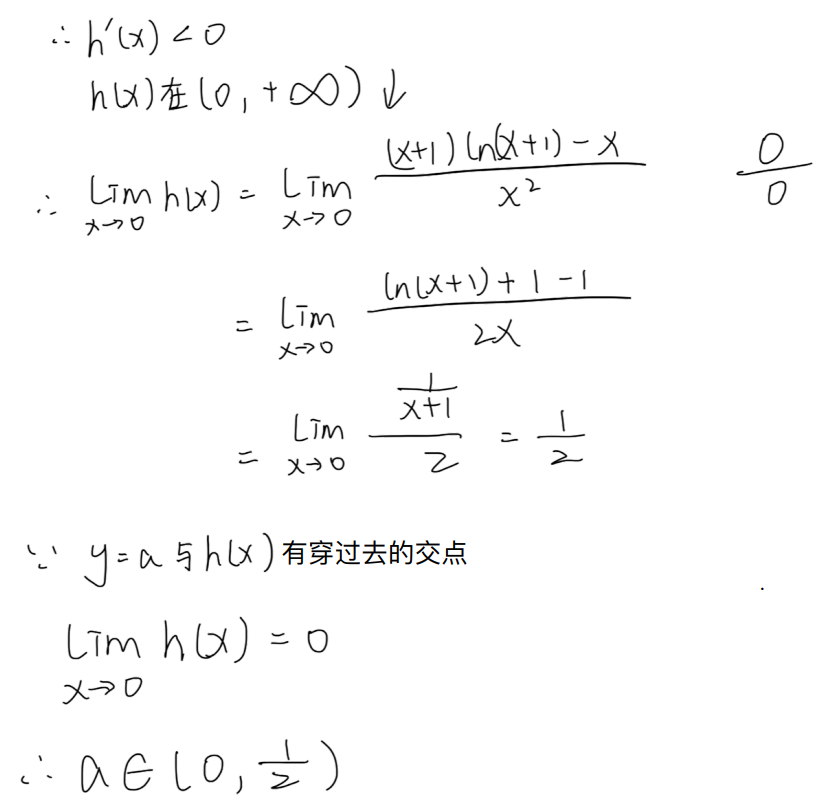 ∴ h′(x) < 0
h(x)在(0, +∞) ↓
∴ lim_{x→0} h(x) = lim_{x→0} \frac{(x+1)ln(x+1) - x}{x²} \frac{0}{0}
= lim_{x→0} \frac{ln(x+1) + 1 - 1}{2x}
= lim_{x→0} \frac{\frac{1}{x+1}}{2} = \frac{1}{2}
∵ y = a 与 h(x) 有穿过去的交点
lim_{x→0} h(x) = 0
∴ a ∈ (0, \frac{1}{2})